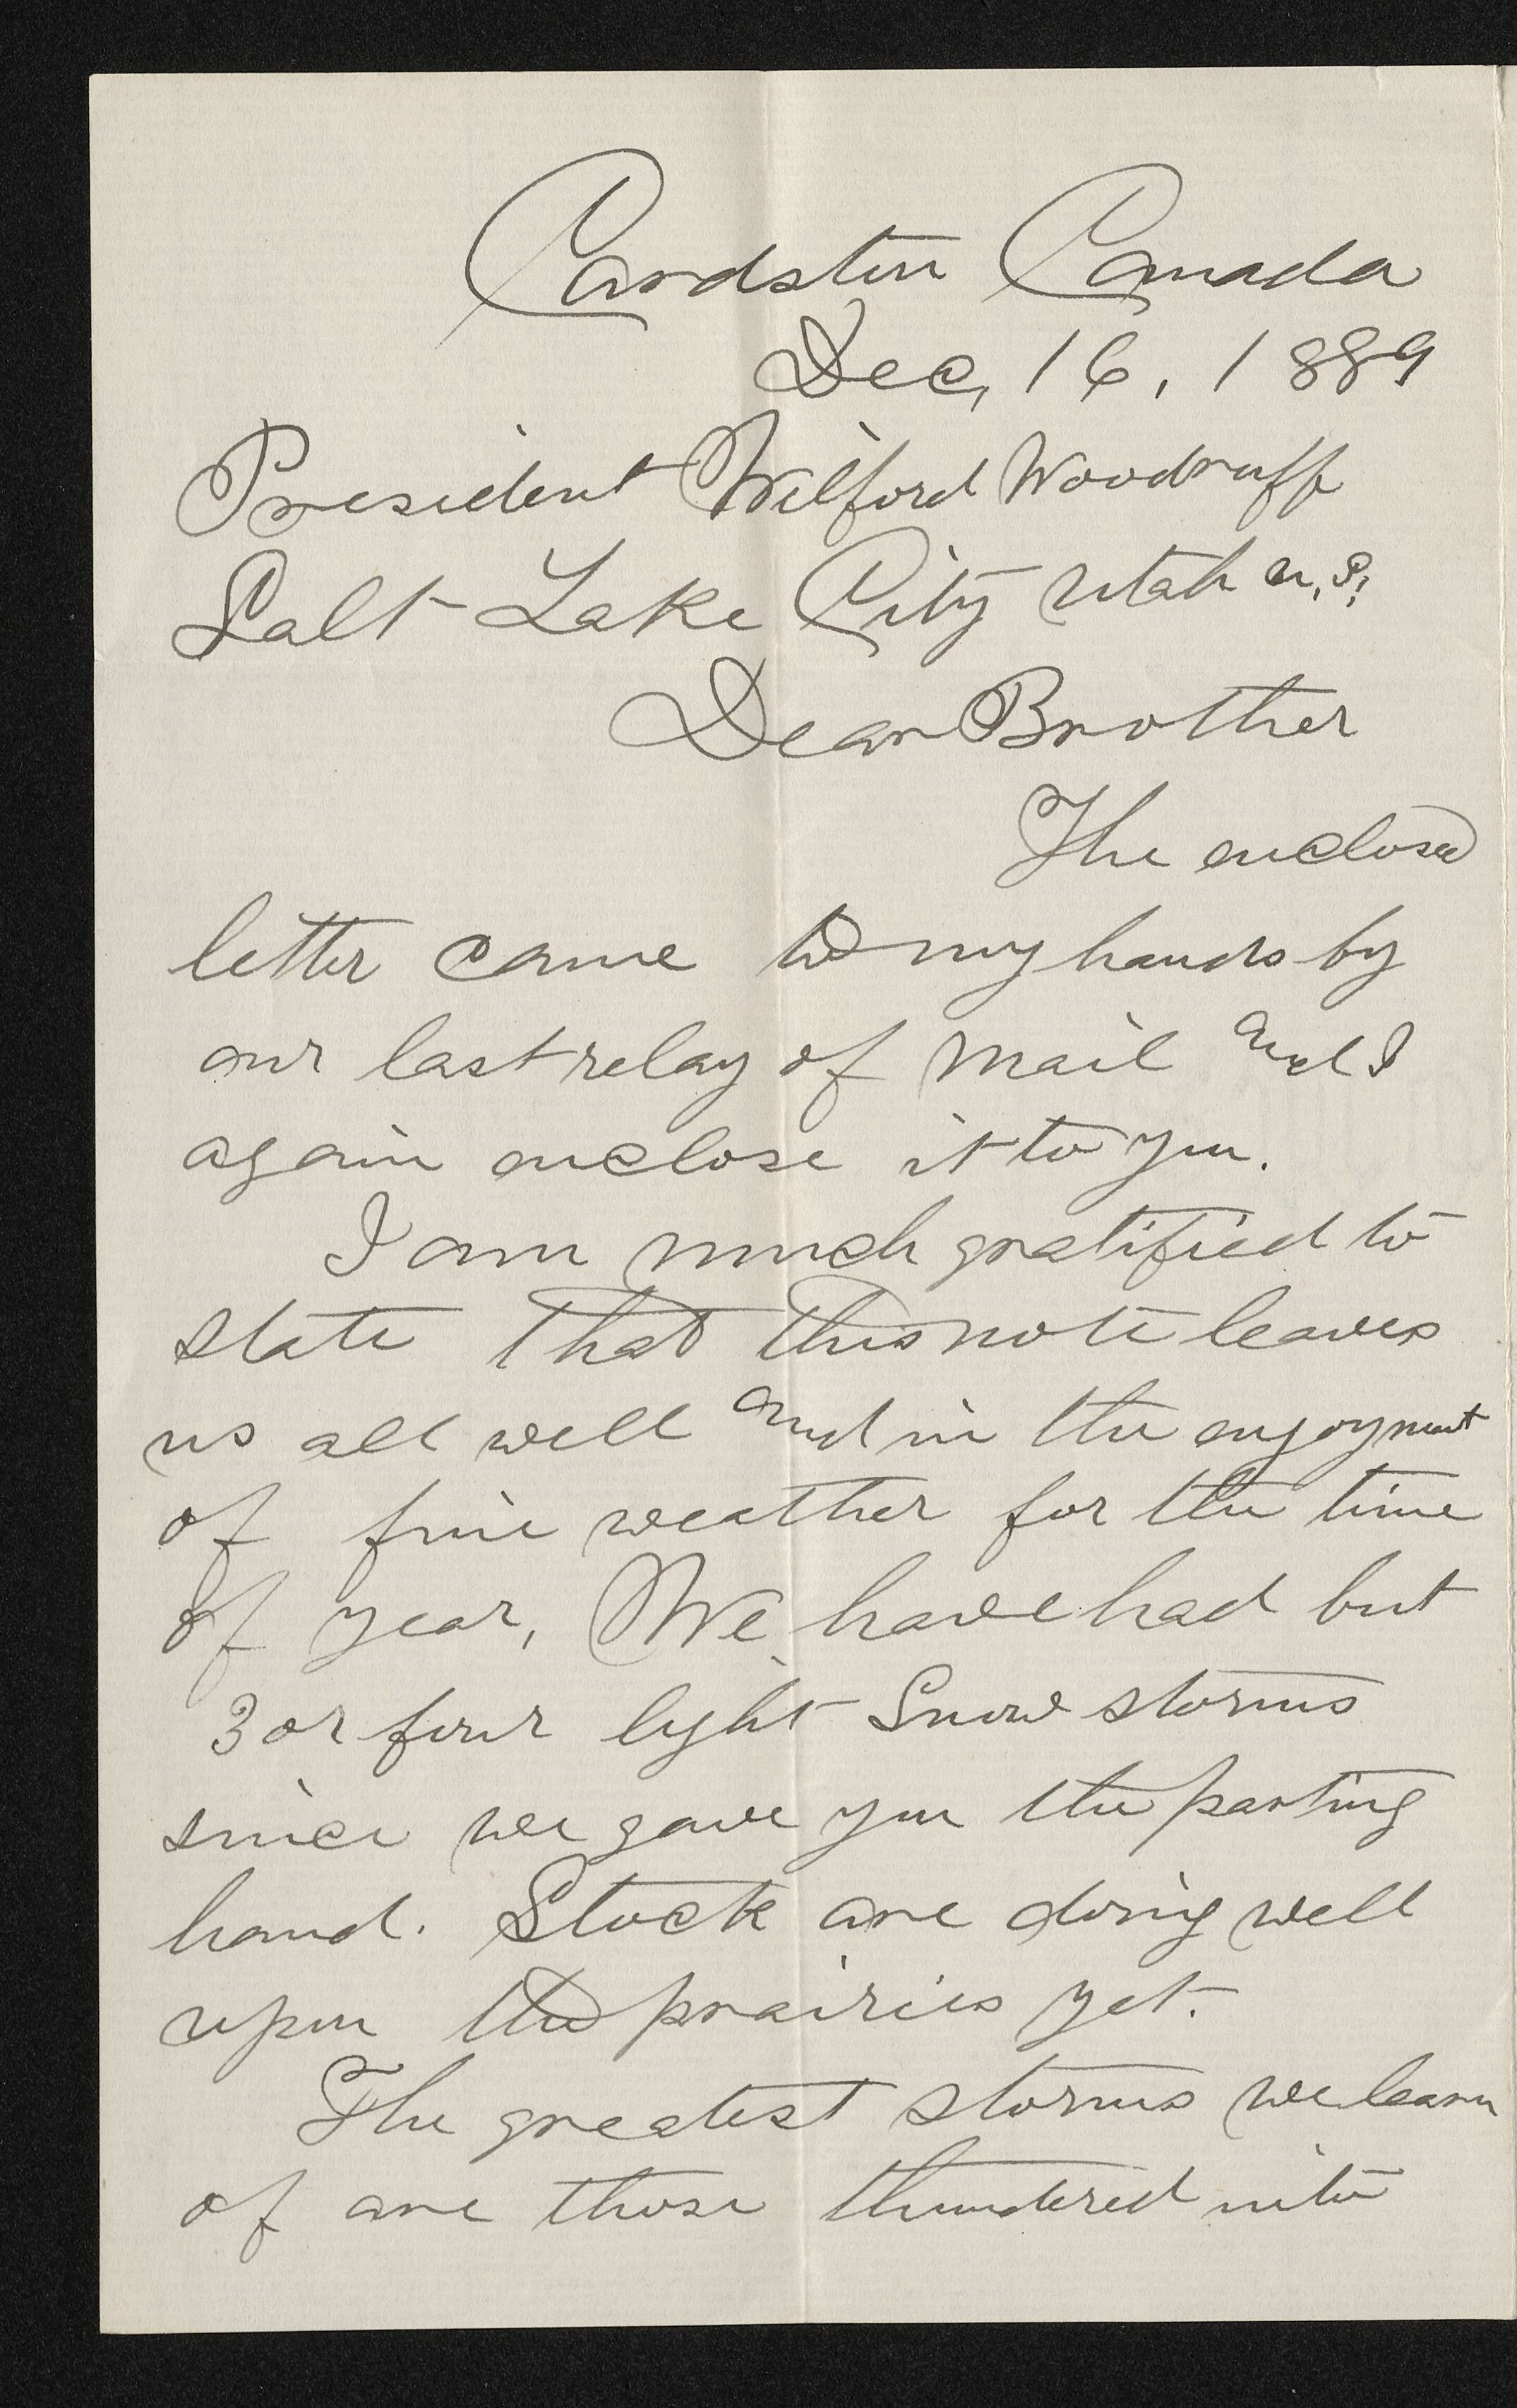 Cardston Canada
Dec, 16, 1889
President Wilford Woodruff
Salt Lake City Utah U,S,
Dear Brother
The enclosed
letter came to my hands by
our last relay of mail and I
again enclose it to you.
I am much gratified to
state that this note leaves
us all well and in the enjoyment
of fine weather for the time
of year, We have had but
3 or four light Snow storms
since we gave you the parting
hand. Stock are doing well
upon the prairies yet.
The greatest storms we learn
of are those thundered into